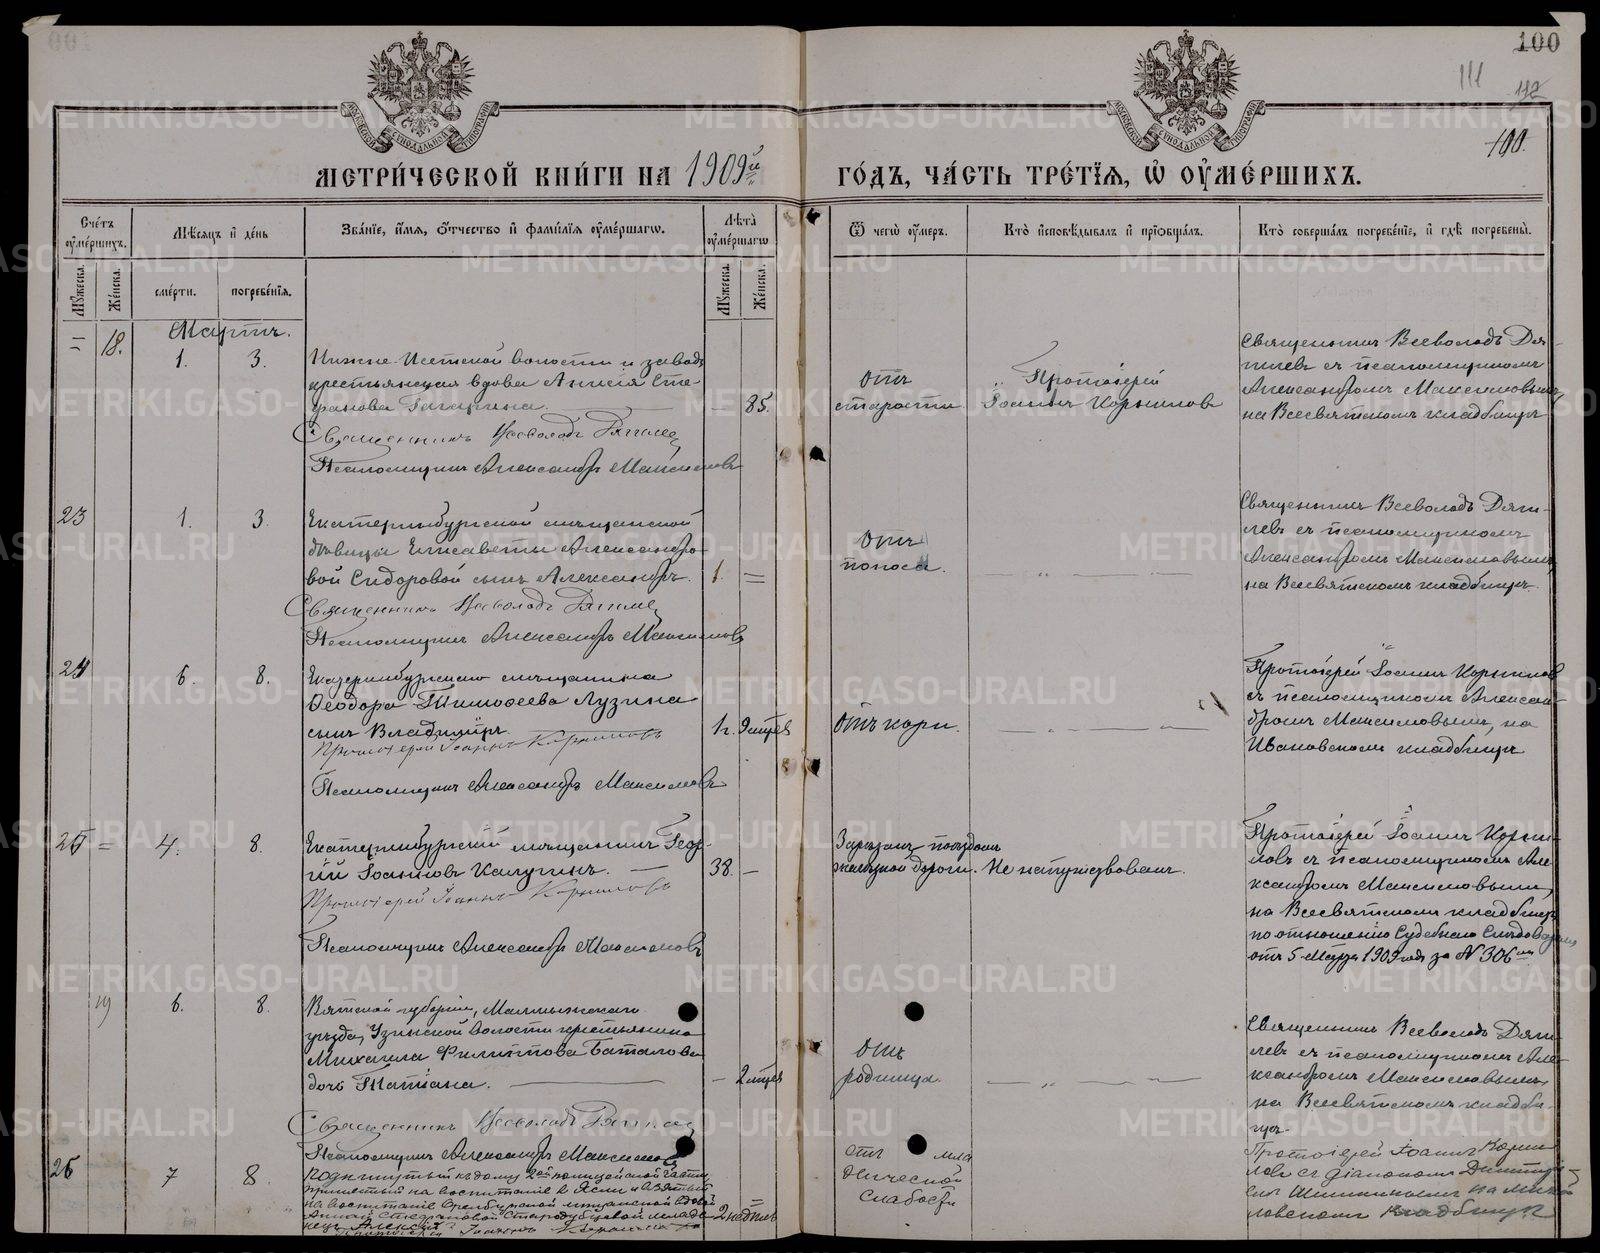 100
111
112
100.
МЕТРИ́ЧЕСКОЙ КНИ́ГИ НА 1909й ГО́ДЪ, ЧА́СТЬ ТРЕ́ТІѦ, Ѡ ОУМЕ́РШИХЪ.
Сче́тъ оумéршихъ.
Мѣсяцъ и де́нь
Зва́нїе, и́мя, ѻ́тчество и фами́лїя оумéршагѡ.
Лѣта̀ оумéршагѡ
Ѿ чегѡ̀ оу́меръ.
Кто̀ исповѣдывалъ и прїѡбща́лъ.
Кто̀ соверша́лъ погребе́нїе, и гдѣ̀ погребены̀.
Мꙋжеска.
Же́нска.
сме́рти.
погребе́нїѧ.
Мꙋжеска.
Же́нска.
Мартъ.
= 18. 1. 3.
Нижне-Исетской волости и завода
крестьянская вдова Анисія Сте-
фанова Гагарина. — 85.
Священникъ Всеволодъ Дягилев
Псаломщикъ Александръ Максимовъ
отъ
старости.
Протоіерей
Іоаннъ Корниловъ
Священникъ Всеволодъ Дяг-
илевъ съ псаломщикомъ
Александромъ Максимовымъ,
на Всесвятскомъ кладбищѣ
23 1. 3.
Екатеринбургской мѣщанской
дѣвицы Елисаветы Александро-
вой Сидоровой сынъ Александръ. 1. =
Священникъ Всеволодъ Дягилев
Псаломщикъ Александръ Максимовъ
Отъ
поноса.
— „ —
Священникъ Всеволодъ Дяги-
левъ съ псаломщикомъ
Александромъ Максимовымъ,
на Всесвятскомъ кладбищѣ.
24 6. 8.
Екатеринбургскаго мѣщанина
Ѳеодора Тимоѳеева Лузина
сынъ Владиміръ 1г. 9 мѣсяц
Протоіерей Іоаннъ Корниловъ
Псаломщикъ Александръ Максимовъ
Отъ кори.
— „ —
Протоіерей Іоаннъ Корнилов
съ псаломщикомъ Алексан-
дромъ Максимовымъ, на
Ивановскомъ кладбищѣ
25 = 4. 8.
Екатеринбургскій мѣщанинъ Геор-
гій Іоанновъ Калугинъ. — 38. —
Протоіерей Іоаннъ Корниловъ
Псаломщикъ Александръ Максимовъ
Зарѣзанъ поѣздомъ
желѣзной дороги.
Не напутствованъ.
Протоіерей Іоаннъ Корни-
ловъ съ псаломщикомъ Але-
ксандромъ Максимовымъ,
на Всесвятскомъ кладбищѣ
по отношенію Судебнаго Слѣдователя
отъ 5 Марта 1909 года за № 306
19 6. 8.
Вятской губерніи, Малмыжскаго
уѣзда, Узинской волости крестьянина
Михаила Филиппова Баталова
дочь Татіана. — 2 мѣсяц
Священникъ Всеволодъ Дягилев
Псаломщикъ Александръ Максимов
Отъ
родимца.
— „ —
Священникъ Всеволодъ Дяги-
левъ съ псаломщикомъ Але-
ксандромъ Максимовымъ,
на Всесвятскомъ кладби-
щѣ.
26 7 8.
Подкинутый къ дому 2ой полицейской части,
принятый на воспитаніе в Ясли и взятый
на воспитаніе Оренбургской мѣщанской вдовой
Анной Стефановой Стародубцевой младе-
нецъ Алексій 2 недѣль =
Протоіерей Іоаннъ Корниловъ
отъ мла
денческой
слабости
Протоіерей Іоаннъ Корни
ловъ съ діакономъ Димитрі
емъ Шишкинымъ на Михай
ловскомъ кладбищѣ
METRIKI.GASO-URAL.RU